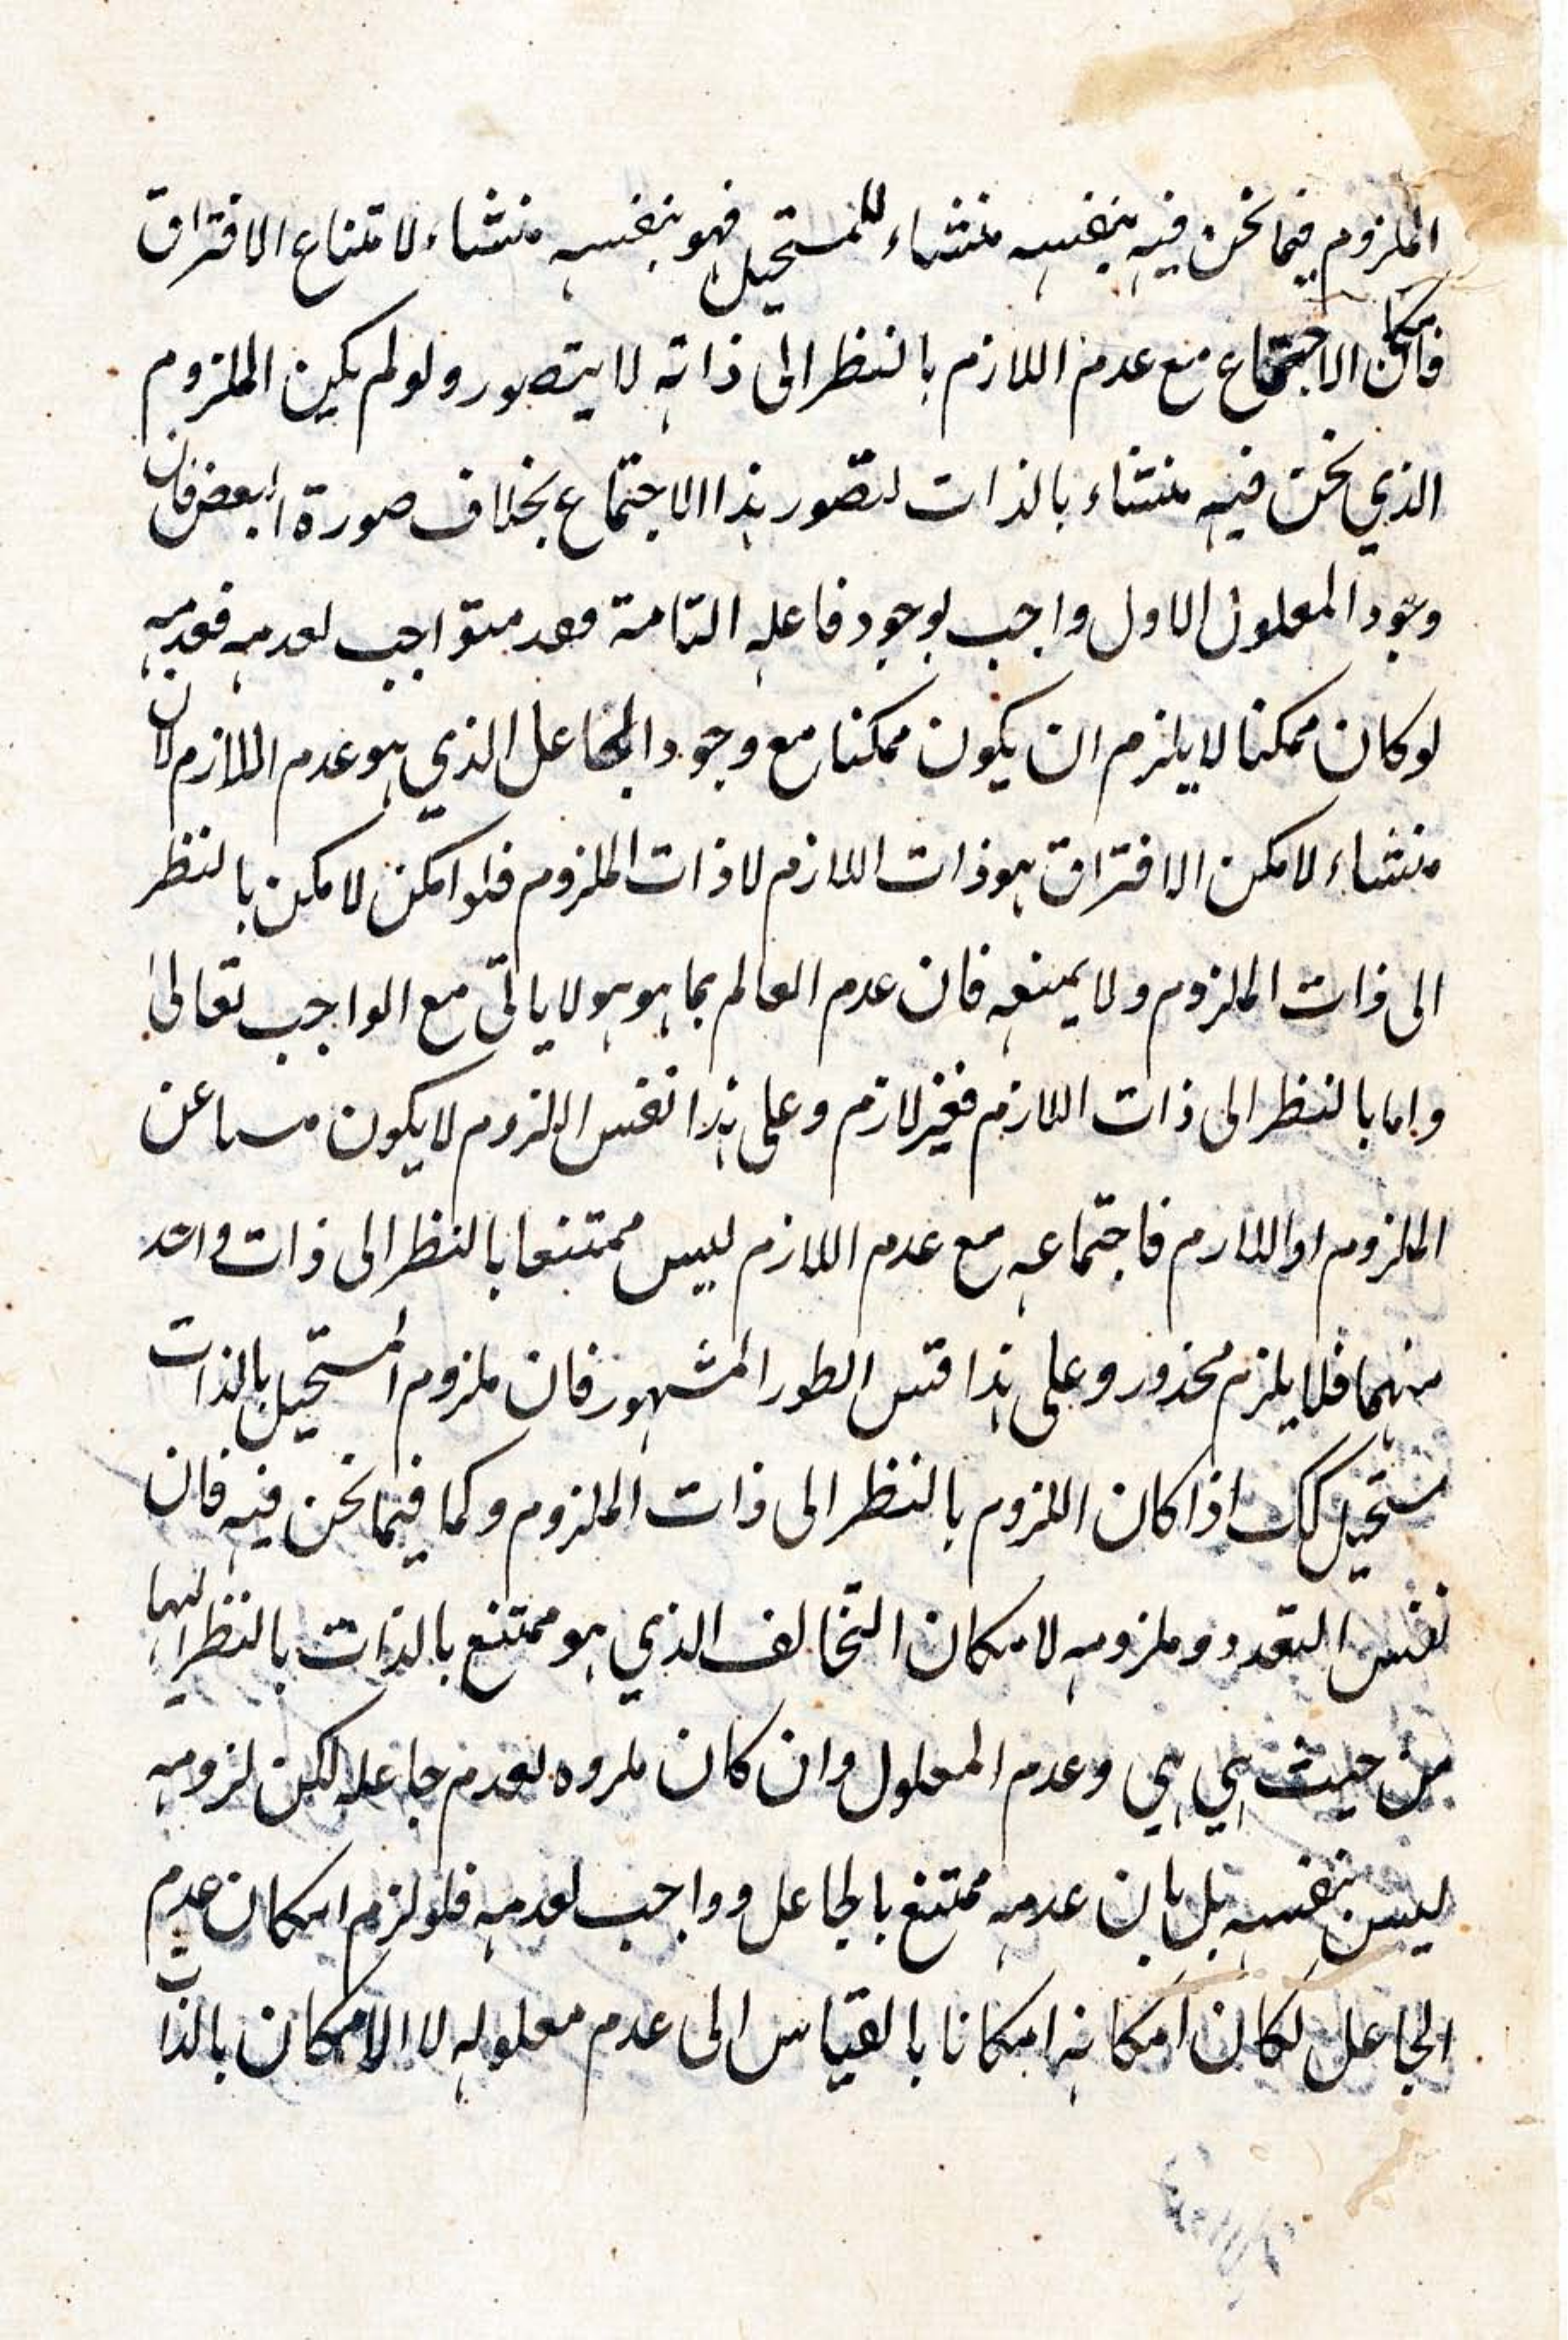 الملزوم فيما نحن فيه بنفسه منشاء للمستحيل فهو بنفسه منشاء لامتناع الافتراق
فامكان الاجتماع مع عدم اللازم بالنظر الى ذاته لا يتصور ولو لم يكن الملزوم
الذي نحن فيه منشاء بالذات لتصور هذا الاجتماع بخلاف صورة البعض فان
وجود المعلول الاول واجب بوجود فاعله التامة فعدمه واجب لعدمه فعدمه
لو كان ممكنا لا يلزم ان يكون ممكنا مع وجود الجاعل الذي هو عدم اللازم لان
منشاء لامكن الافتراق هو ذات اللازم لا ذات الملزوم فلو امكن لامكن بالنظر
الى ذات الملزوم ولا يمنعه فان عدم العالم بما هو هو لا يابى مع الواجب تعالى
واما بالنظر الى ذات اللازم فغير لازم وعلى هذا نفس اللزوم لا يكون عن
الملزوم او اللازم فاجتماعه مع عدم اللازم ليس ممتنعا بالنظر الى ذات واحد
منهما فلا يلزم محذور وعلى هذا قس الطور المشهور فان ملزوم المستحيل بالذات
مستحيل كك اذا كان اللزوم بالنظر الى ذات الملزوم وكما فيما نحن فيه فان
نفس التعدد وملزومه لامكان التخالف الذي هو ممتنع بالذات بالنظر اليها
من حيث هي هي وعدم المعلول وان كان ملزومه لعدم جاعله لكن لزومه
ليس بنفسه بل بان عدمه ممتنع بالجاعل وواجب لعدمه فلو لزم امكان عدم
الجاعل لكان امكانه امكانا بالقياس الى عدم معلوله لا الامكان بالذات